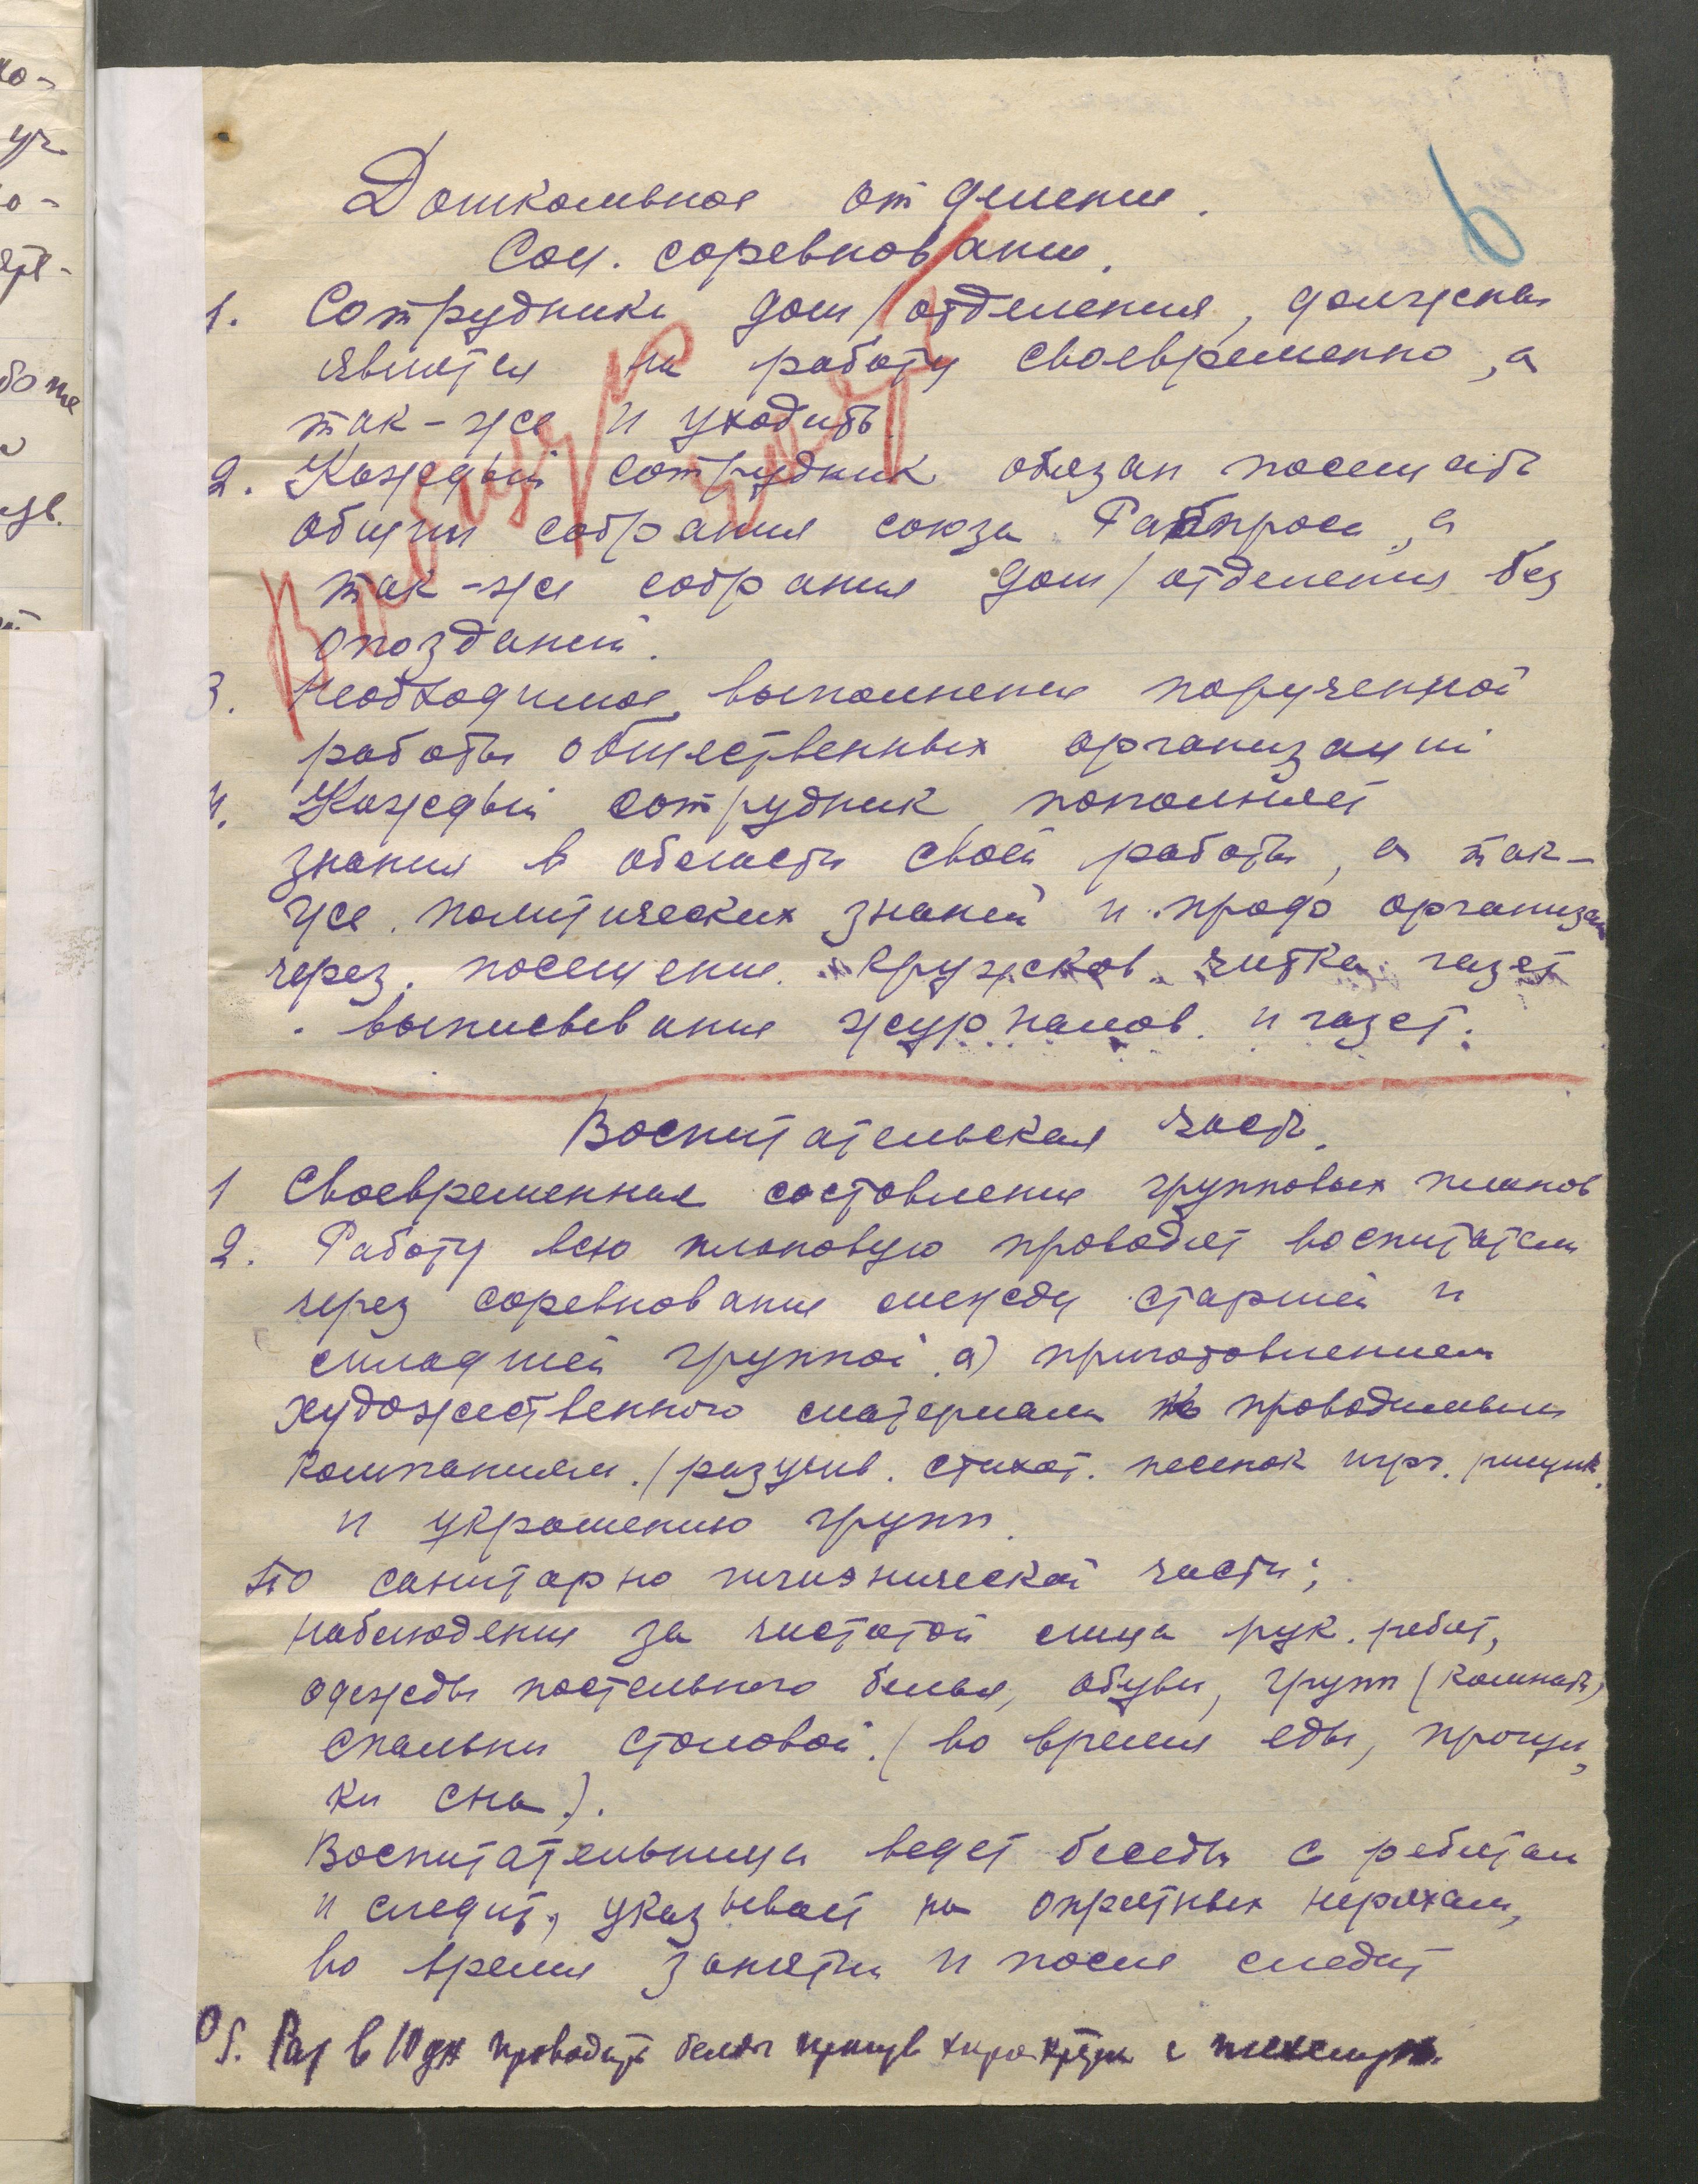 6
Дошкольное отделение.
Соц. соревнование.
1. Сотрудники дош/отделения, должны
явится на работу своевременно, а
так-же и уходить.
2. Каждый сотрудник обязан посещать
общии собрания союза Рабпроса, а
так-же собрания дош/отделения без
опозданий.
3. Необходимое выполнение порученной
работы общественных организаций
4. Каждый сотрудник пополняет
знания в области своей работы, а так-
же политических знаний и проф организац
через посещение кружков читка газет
выписывание журналов и газет.
Воспитательская часть.
1 Своевременная составление групповых планов
2. Работу всю плановую проводят воспитатели
через соревнование между старшей и
младшей группой а) приготовлением
художественного материала к проводимым
компаниям. /разучив. стихот. песенок игр. рисунк.
и украшению групп.
по санитарно гигиэнической части;
наблюдения за чистотой лица рук. ребят,
одежды постельного белья, обуви, групп (комнаты,
спальни столовой. (во время еды, прогул,
ки сна).
Воспитательница ведет беседы с ребятам
и следит, указывает на опрятных неряхам,
во время занятии и после следит
5. Раз в 10 дн проводить беседы